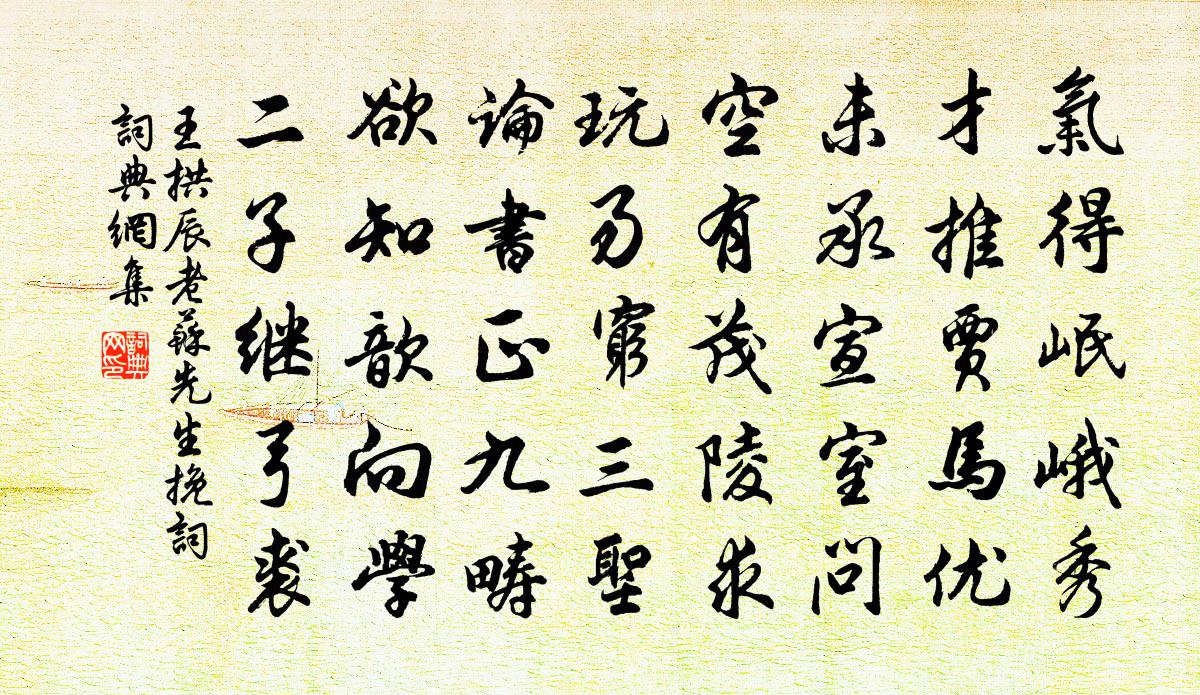 氣得岷峨秀
才推賈馬优
未承宣室問
空有茂陵求
玩易窮三聖
論書正九疇
欲知歆向學
二子继弓裘
王拱辰老蘇先生挽詞
詞典網集
詞典网印